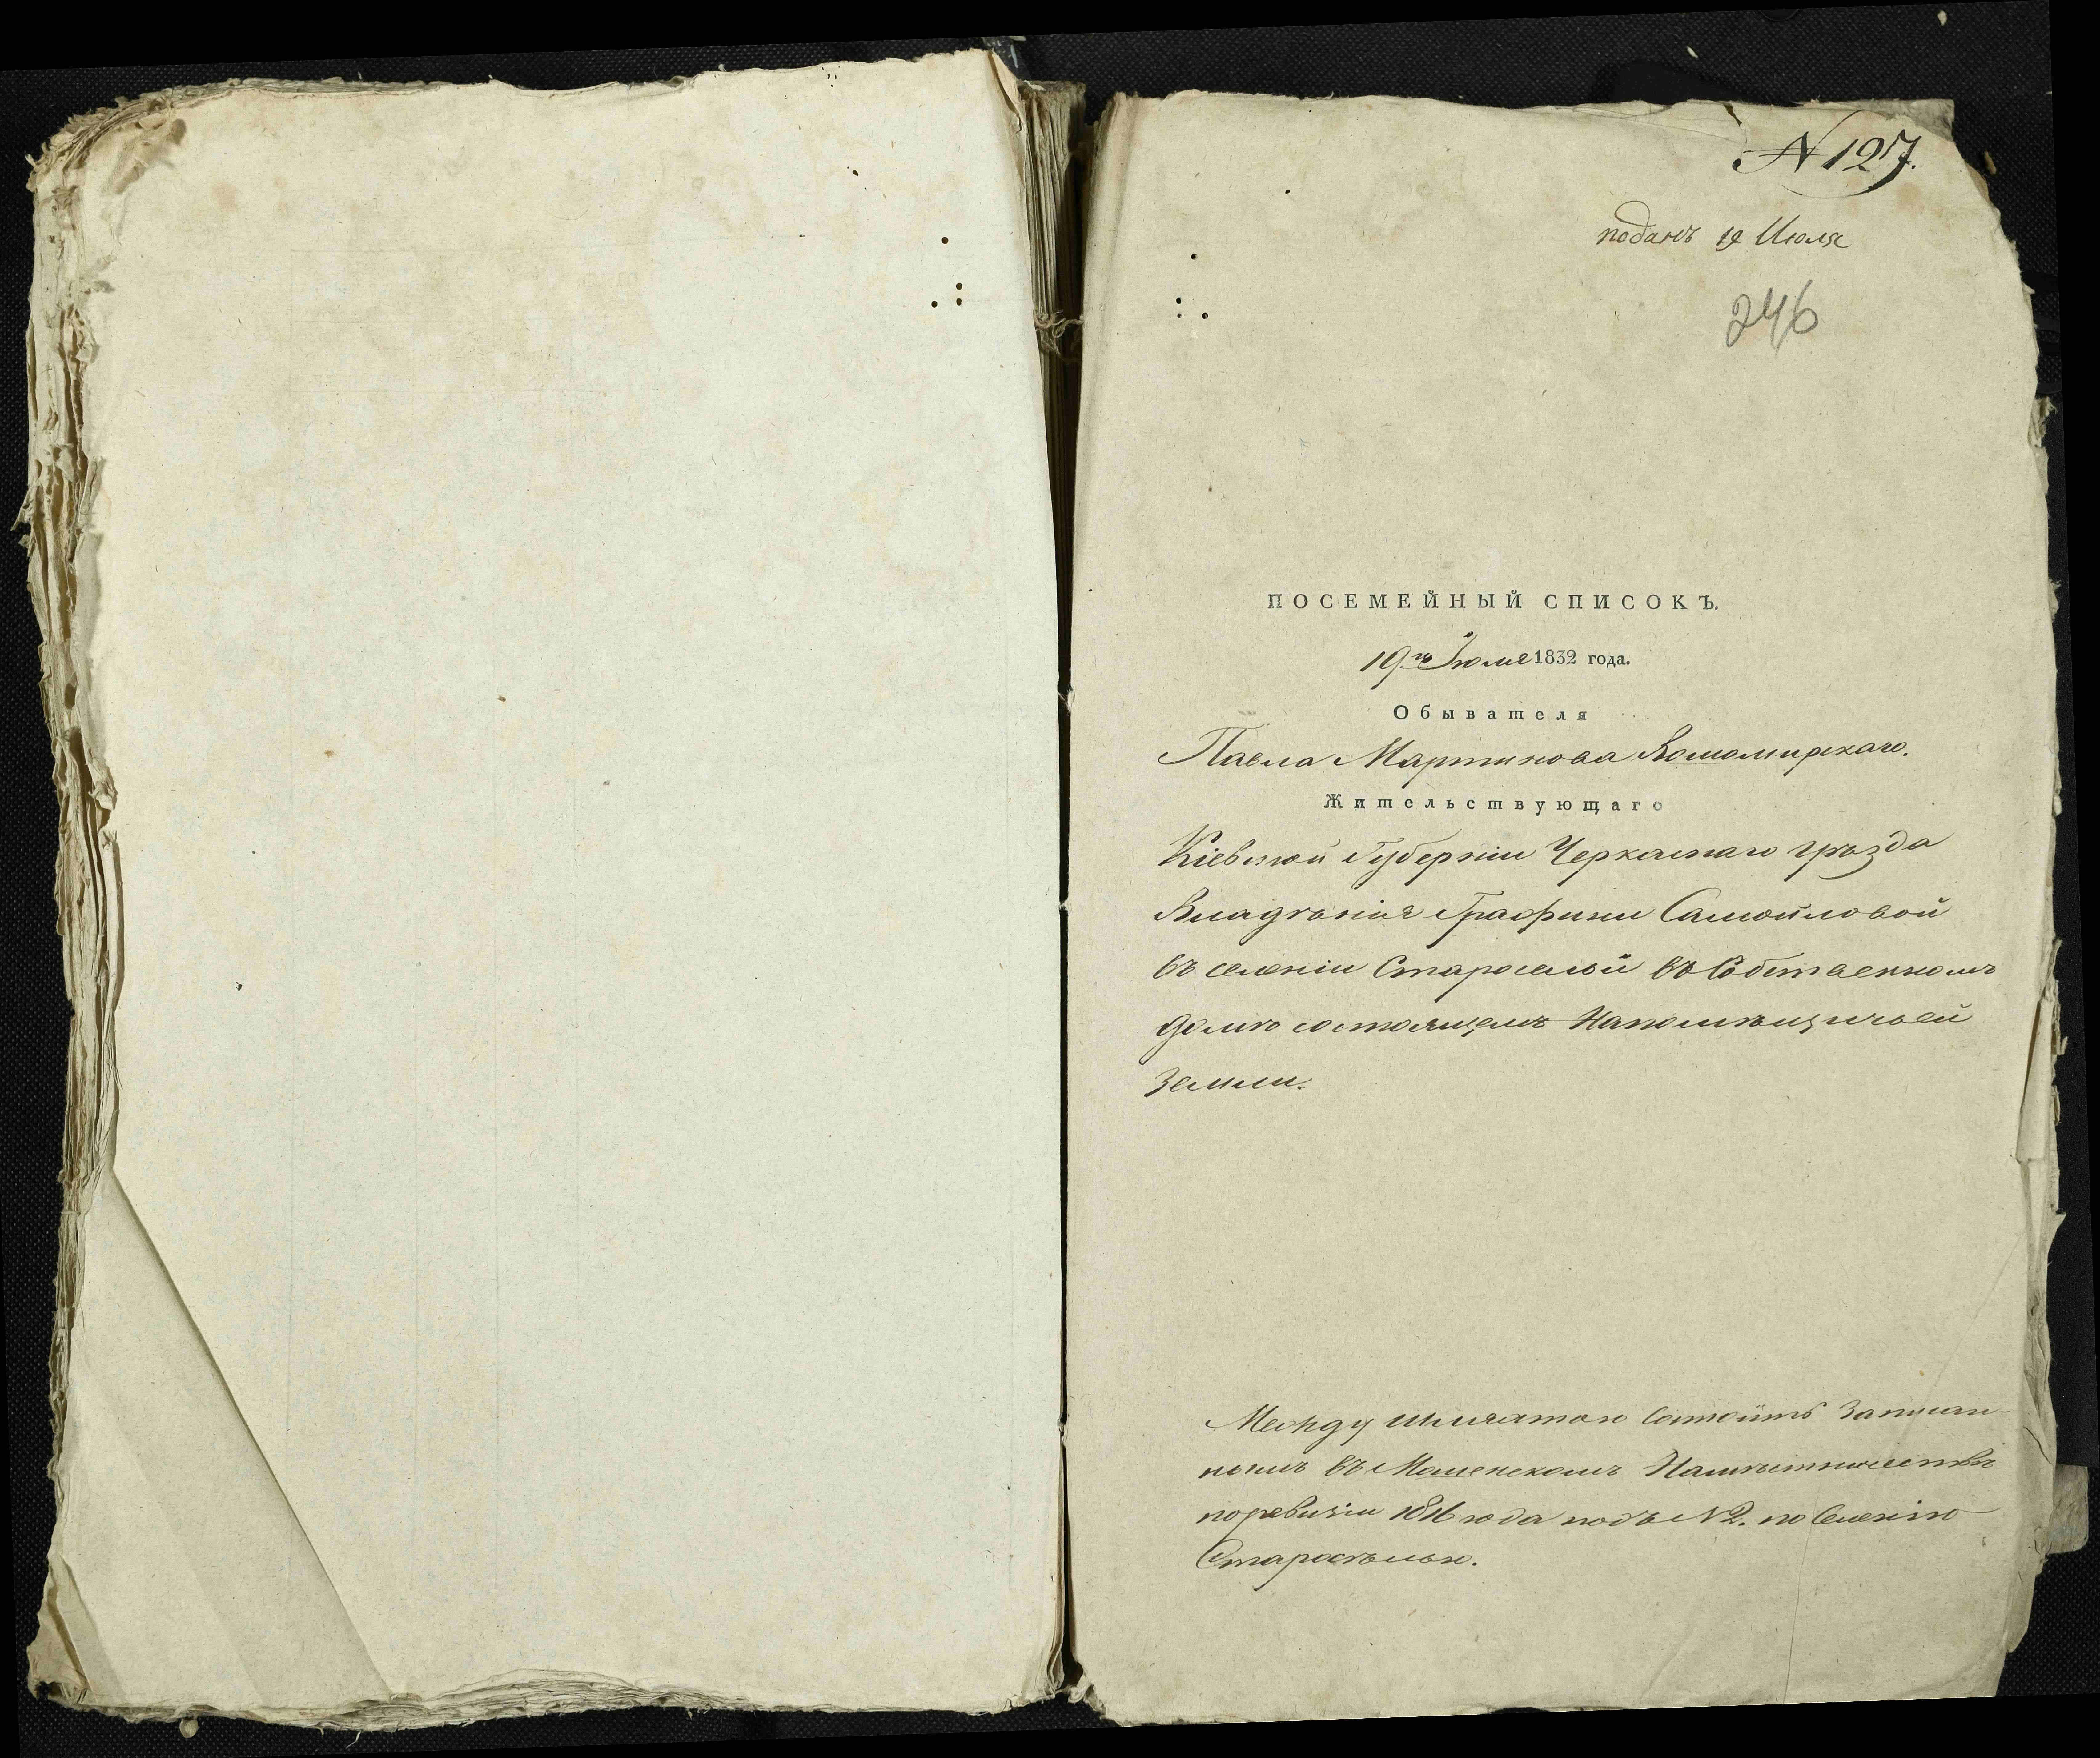 N 127.
поданъ 19 Июля
246
ПОСЕМЕЙНЫЙ СПИСОКЪ.
19.го Іюля 1832 года.
Обывателя
Павла Мартинова
Жительствующаго
Кіевской Губерніи Черкаскаго уѣзда
Владѣнія Графини Самойловой
въ селеніи Старосельи въ Собственномъ
домѣ состоящемъ На помѣщичьей
Земли.
Между шляхтою Состоитъ Записан-
нымъ въ
по ревизіи 1816 года подъ N 2. по Селенію
Старосѣлью.